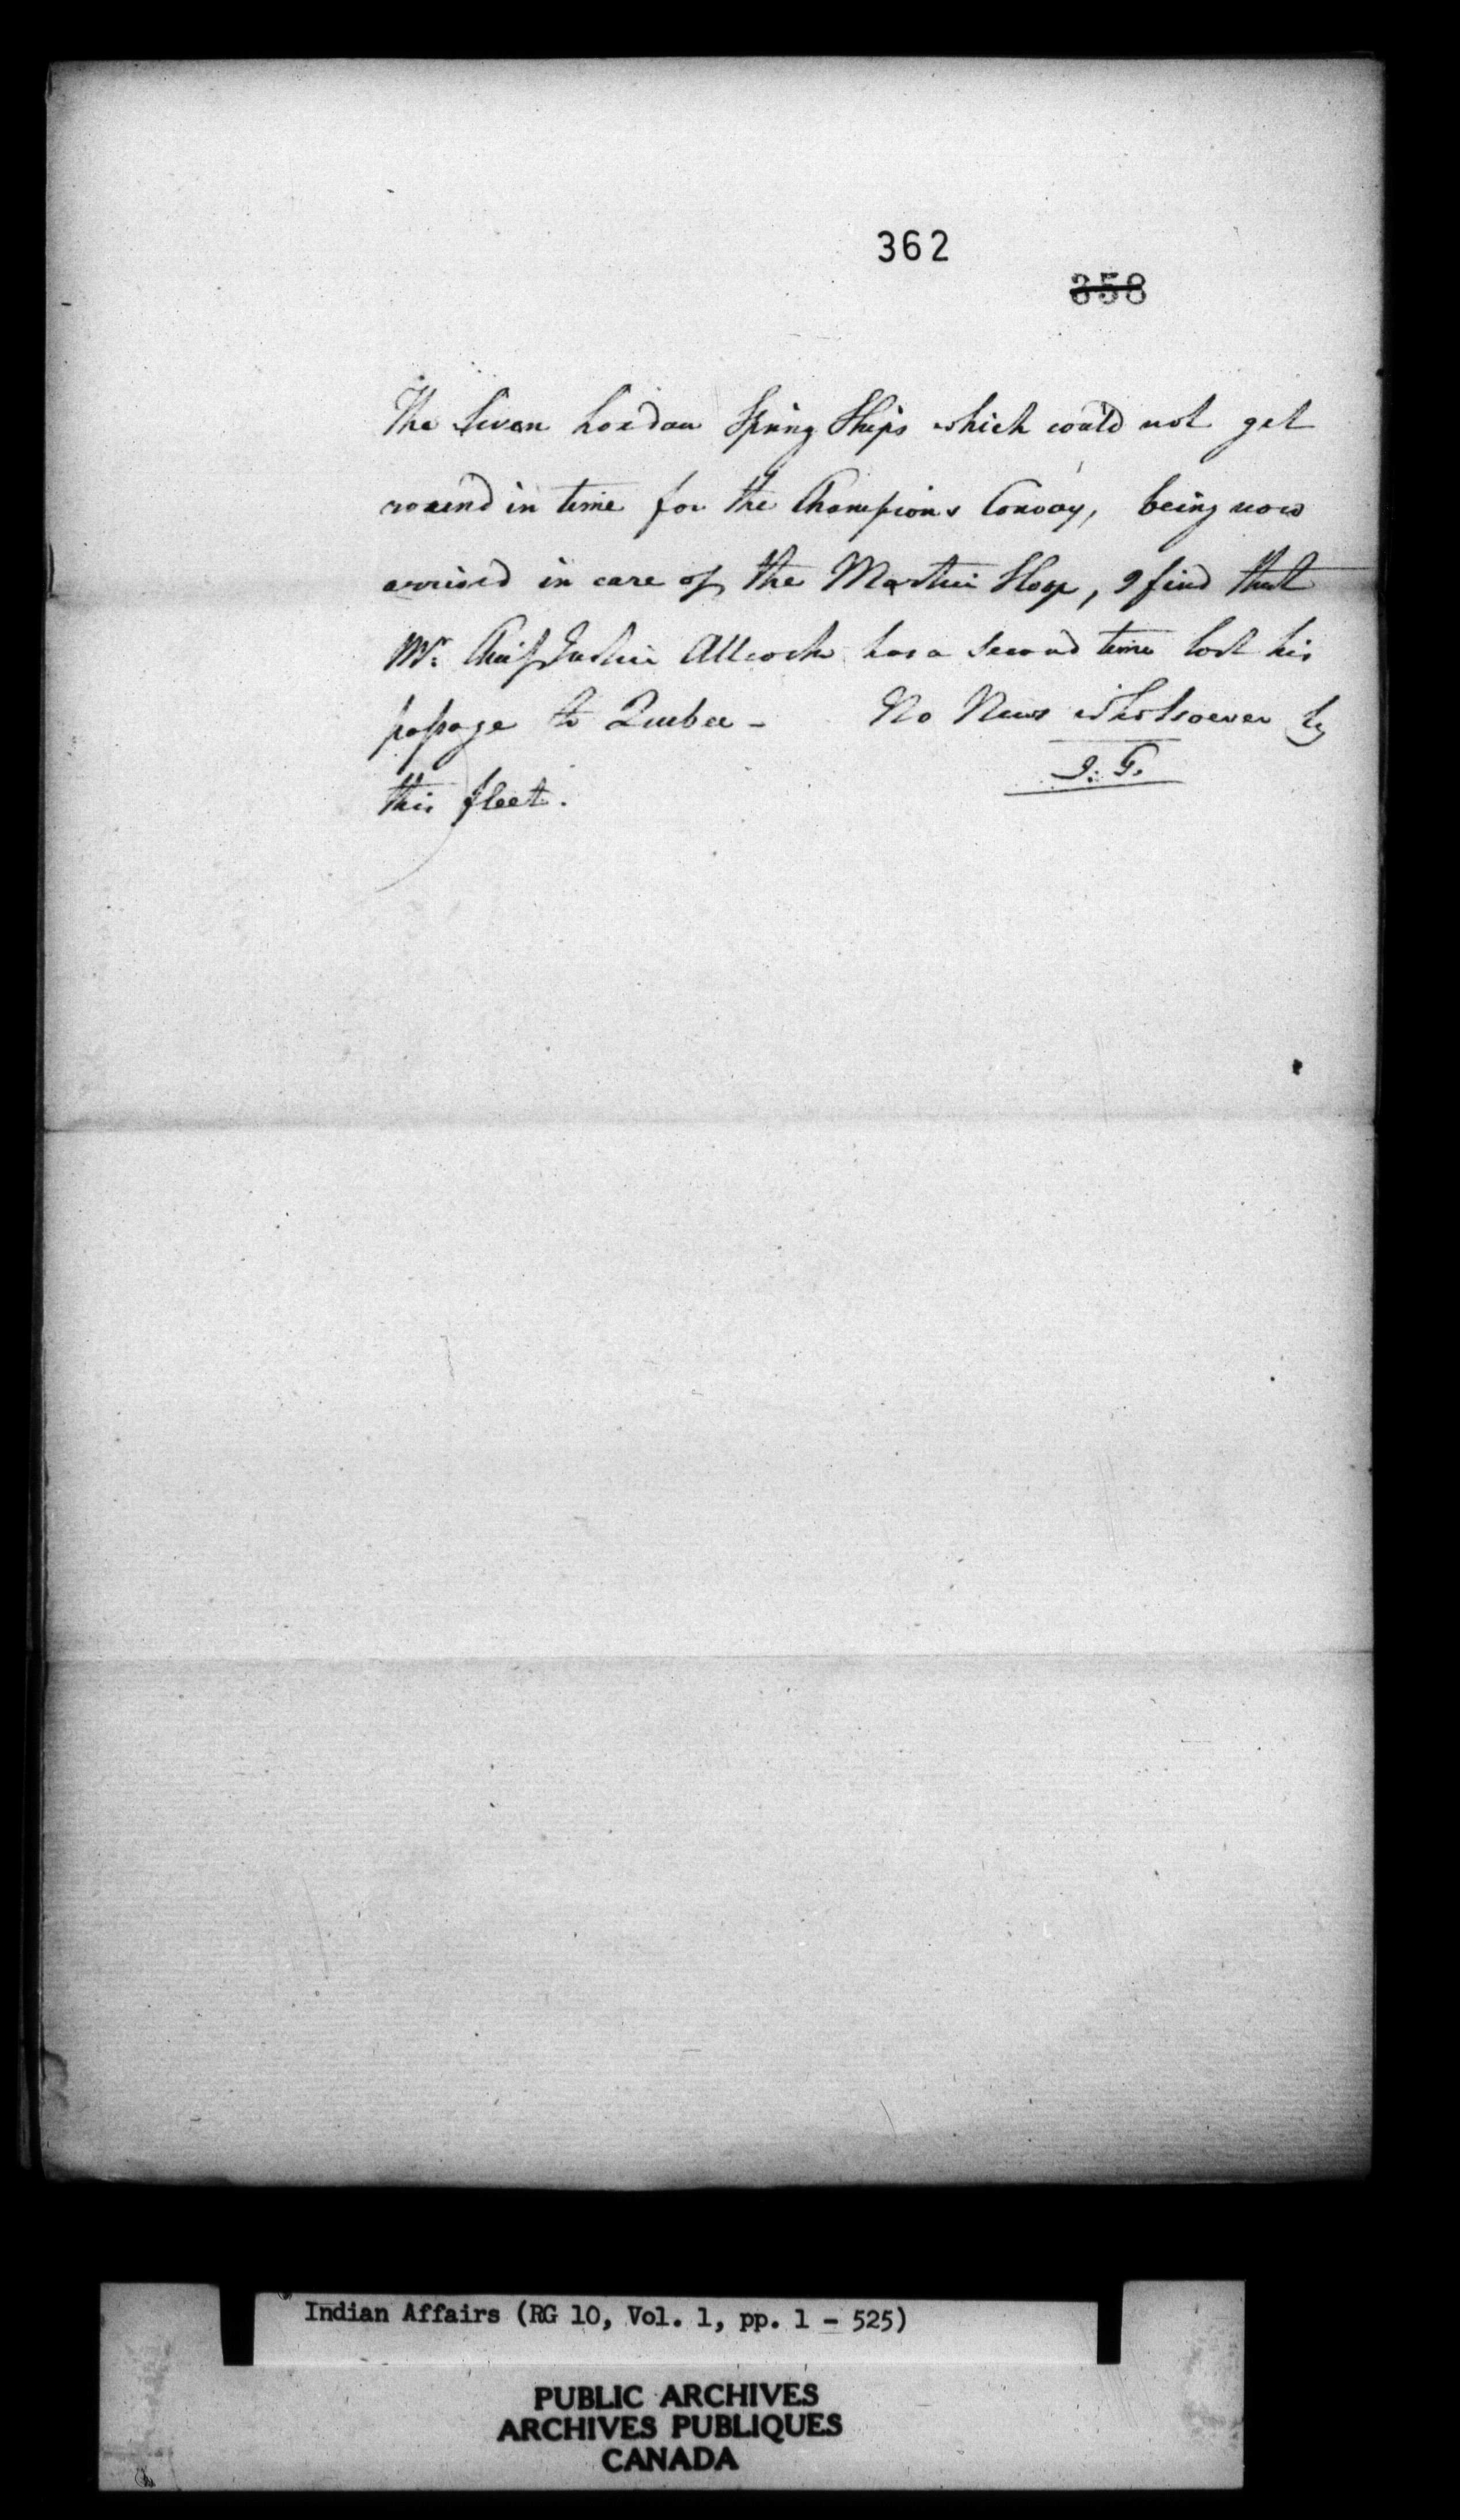 362
358
The Seven London Spring Ships which could not get
round in time for the Champions Convoy, being now
arrived in care of the Martin Sloop, I find that
Mr. Chief Justice Allcock has a second time lost his
passage to Quebec - No News whatsoever by
this fleet.
J: G.
Indian Affairs (RG 10, Vol. 1, pp. 1 - 525)
PUBLIC ARCHIVES
ARCHIVES PUBLIQUES
CANADA